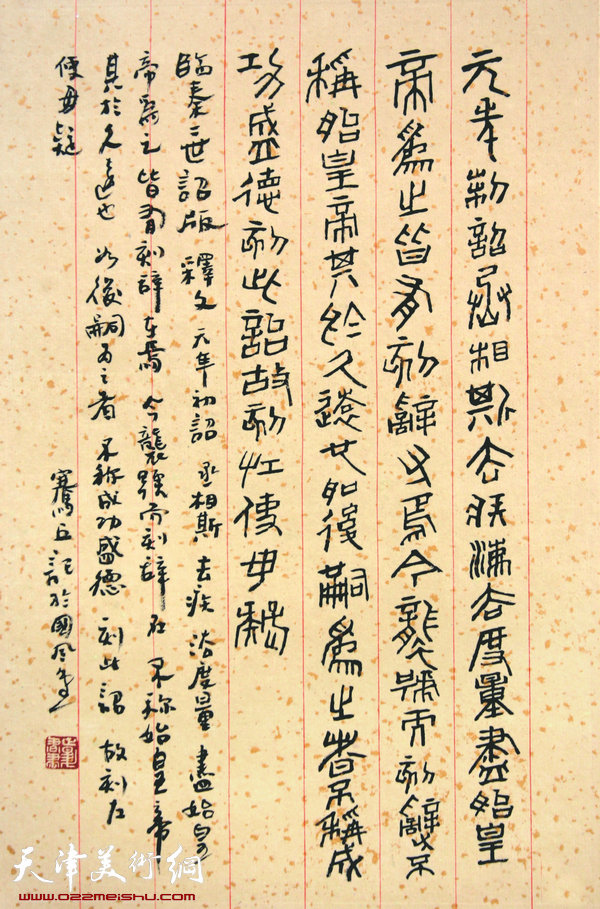 元年制詔丞相斯去疾灋度量盡始皇
帝爲之皆有刻辭焉今襲號而刻辭不
稱始皇帝其於久遠也如後嗣爲之者不稱成
功盛德刻此詔故刻左使毋疑
臨秦二世詔版 釋文 元年初詔 丞相斯 去疾 法度量 盡始皇
帝為之 皆有刻辭在焉 今襲號而刻辭 在 不称始皇帝
其於久遠也 如後嗣為之者 不称成功盛德 刻此詔 故刻左
使毋疑
記於國風
天津美術網
www.022meishu.com